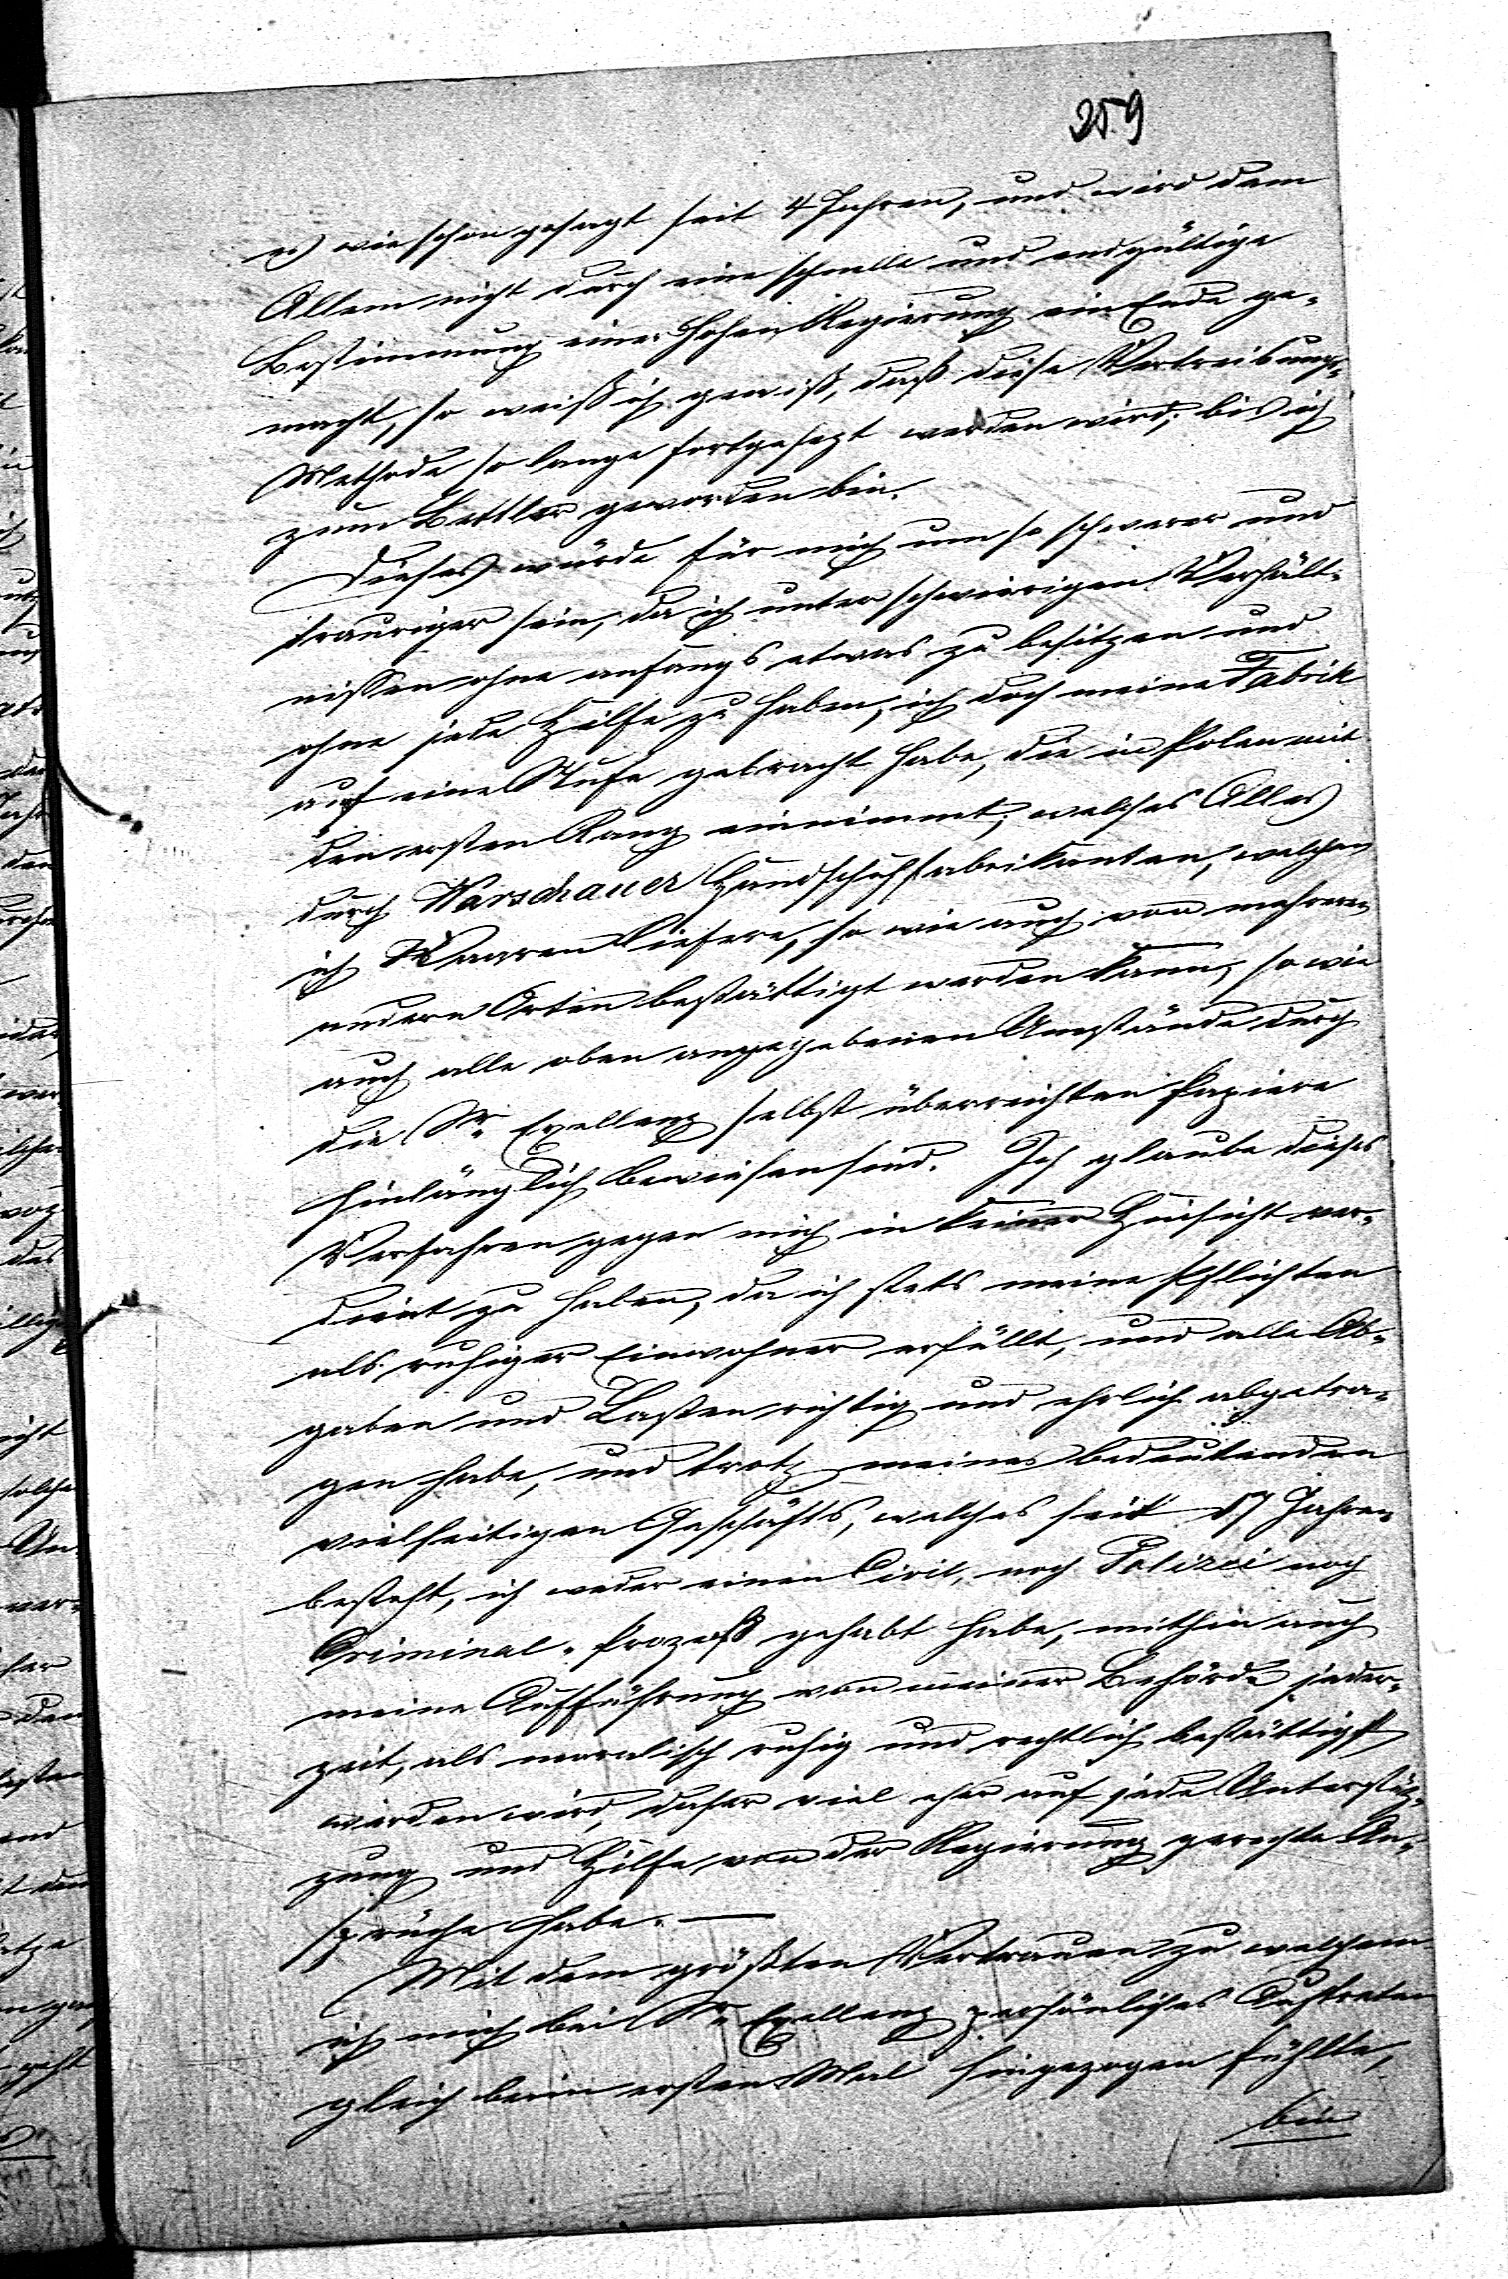 259
es wie schon gesagt seit 4 Jahren, und wird dem
Allem nicht durch eine schnelle und endgültige
Bestimmung einer Hohen Regierung ein Ende ge-
macht, so weiß ich gewiß, daß diese Vertreibungs-
Methode so lange fortgesezt werden wird, bis ich
zum Bettler geworden bin.
Dieses würde für mich um so schwerer und
trauriger sein, da ich unter schwierigen Verhält-
nissen ohne anfangs etwas zu besitzen und
ohne jede Hülfe zu haben, ich doch meine Fabrik
auf eine Stufe gebracht habe, die in Polen mit
den ersten Rang einnimmt, welches Alles
durch Warschauer Handschuhfabrikanten, welchen
ich Waaren liefere, so wie auch von mehreren
andern Orten bestättigt werden kann, so wie
auch alle oben angegebenen Umstände durch
die Sr. Exellenz selbst überreichten Papiere
hinlänglich bewiesen sind. Ich glaube dieses
Verfahren gegen mich in keiner Hinsicht ver-
dient zu haben, da ich stets meine Pflichten
als ruhiger Einwohner erfüllt, und alle Ab-
gaben und Lasten richtig und ehrlich abgetra-
gen habe, und trotz meines bedeutenden
vielseitigen Geschäfts, welches seit 17 Jahren
besteht, ich weder einen Civil, noch Polizei noch
Criminal-Prozeß gehabt habe, mithin auch
meine Aufführung von meiner Behörde jeder-
zeit, als moralisch ruhig und rechtlich bestättigt
werden wird, daher viel eher auf jede Unterstüz-
zung und Hülfe von der Regierung gerechte An-
sprüche habe. —
Mit dem größten Vertrauen zu welchem
ich mich bei Sr. Exellenz persönliches Auftreten
gleich beim ersten Mal hingezogen fühlte,
bin